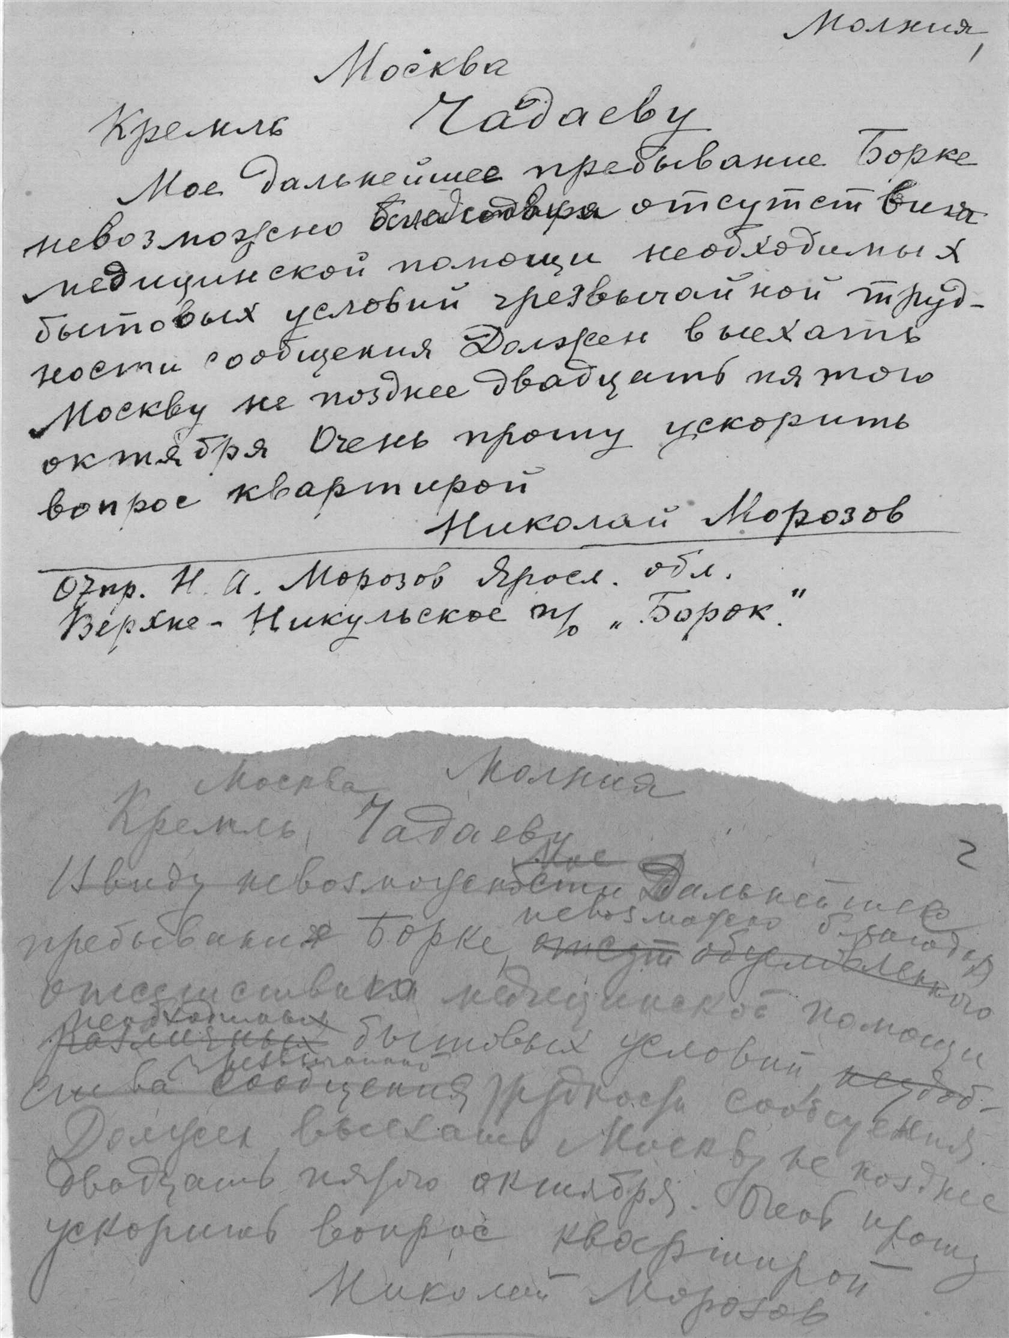 Молния,
Москва
Кремль Чадаеву
Мое дальнейшее пребывание Борке
невозможно благодаря отсутствия
медицинской помощи необходимых
бытовых условий чрезвычайной труд-
ности сообщения Должен выехать
Москву не позднее двадцать пятого
октября Очень прошу ускорить
вопрос квартирой
Николай Морозов
Отпр. Н. А. Морозов Яросл. обл.
Верхне-Никульское п/о „Борок"
Москва Молния
Кремль, Чадаеву
2
Мое
Ввиду невозможности Дальнейшее
невозможно благодаря
пребывание Борке, отсут обусловленного
отсутствика медицинской помощи
необходимых
различных бытовых условий неудоб-
чрезвычайной
ства сообщения трудности сообщения.
Должен выехать Москву не позднее
двадцать пятого октября. Очень прошу
ускорить вопрос квартирой
Николай Морозов